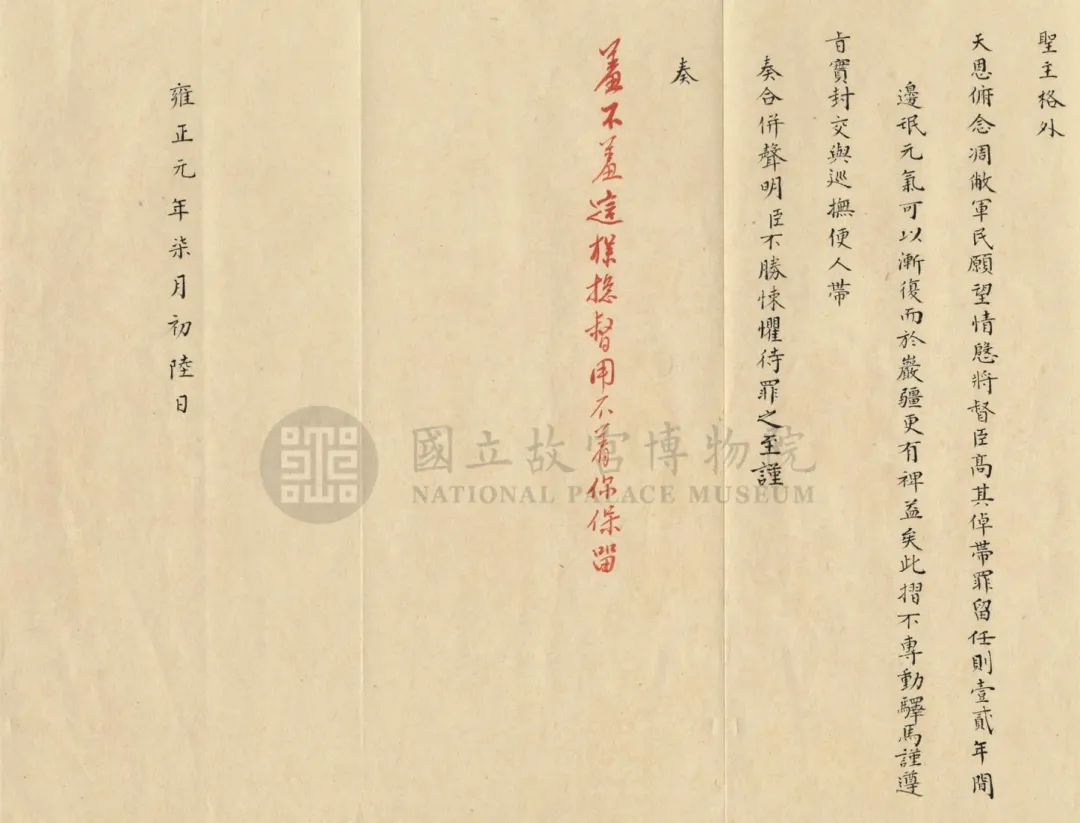 聖主格外
天恩俯念凋敝軍民願望情慇將督臣高其倬帶罪留任則壹貳年間
邊氓元氣可以漸復而於巖疆更有裨益矣此摺不專動驛馬謹遵
旨實封交與巡撫便人帶
奏合併聲明臣不勝悚懼待罪之至謹
奏
羞不羞這樣總督用不着你保留
雍正元年柒月初陸日
國立故宮博物院
NATIONAL PALACE MUSEUM